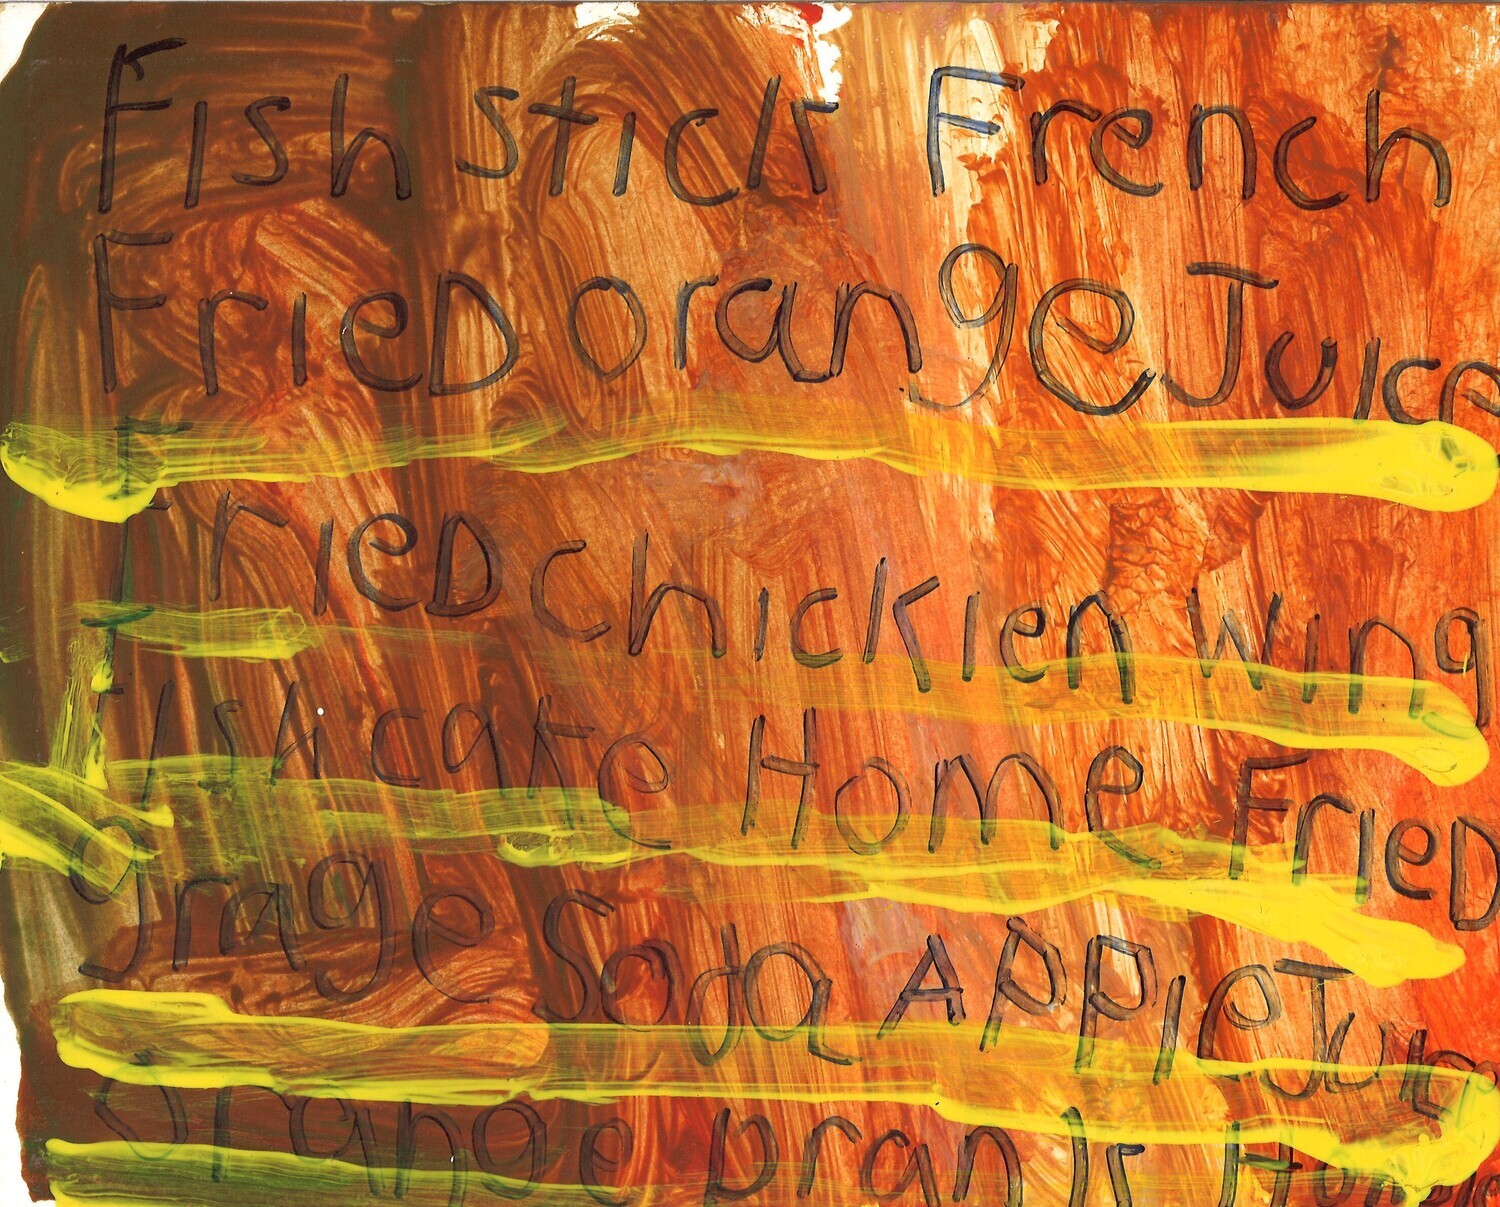 Fish stick French
FrieD orange Juice
FrieD chickien wing
Fish cake Home FrieD
grage Soda APPle Juic
Orange Drank